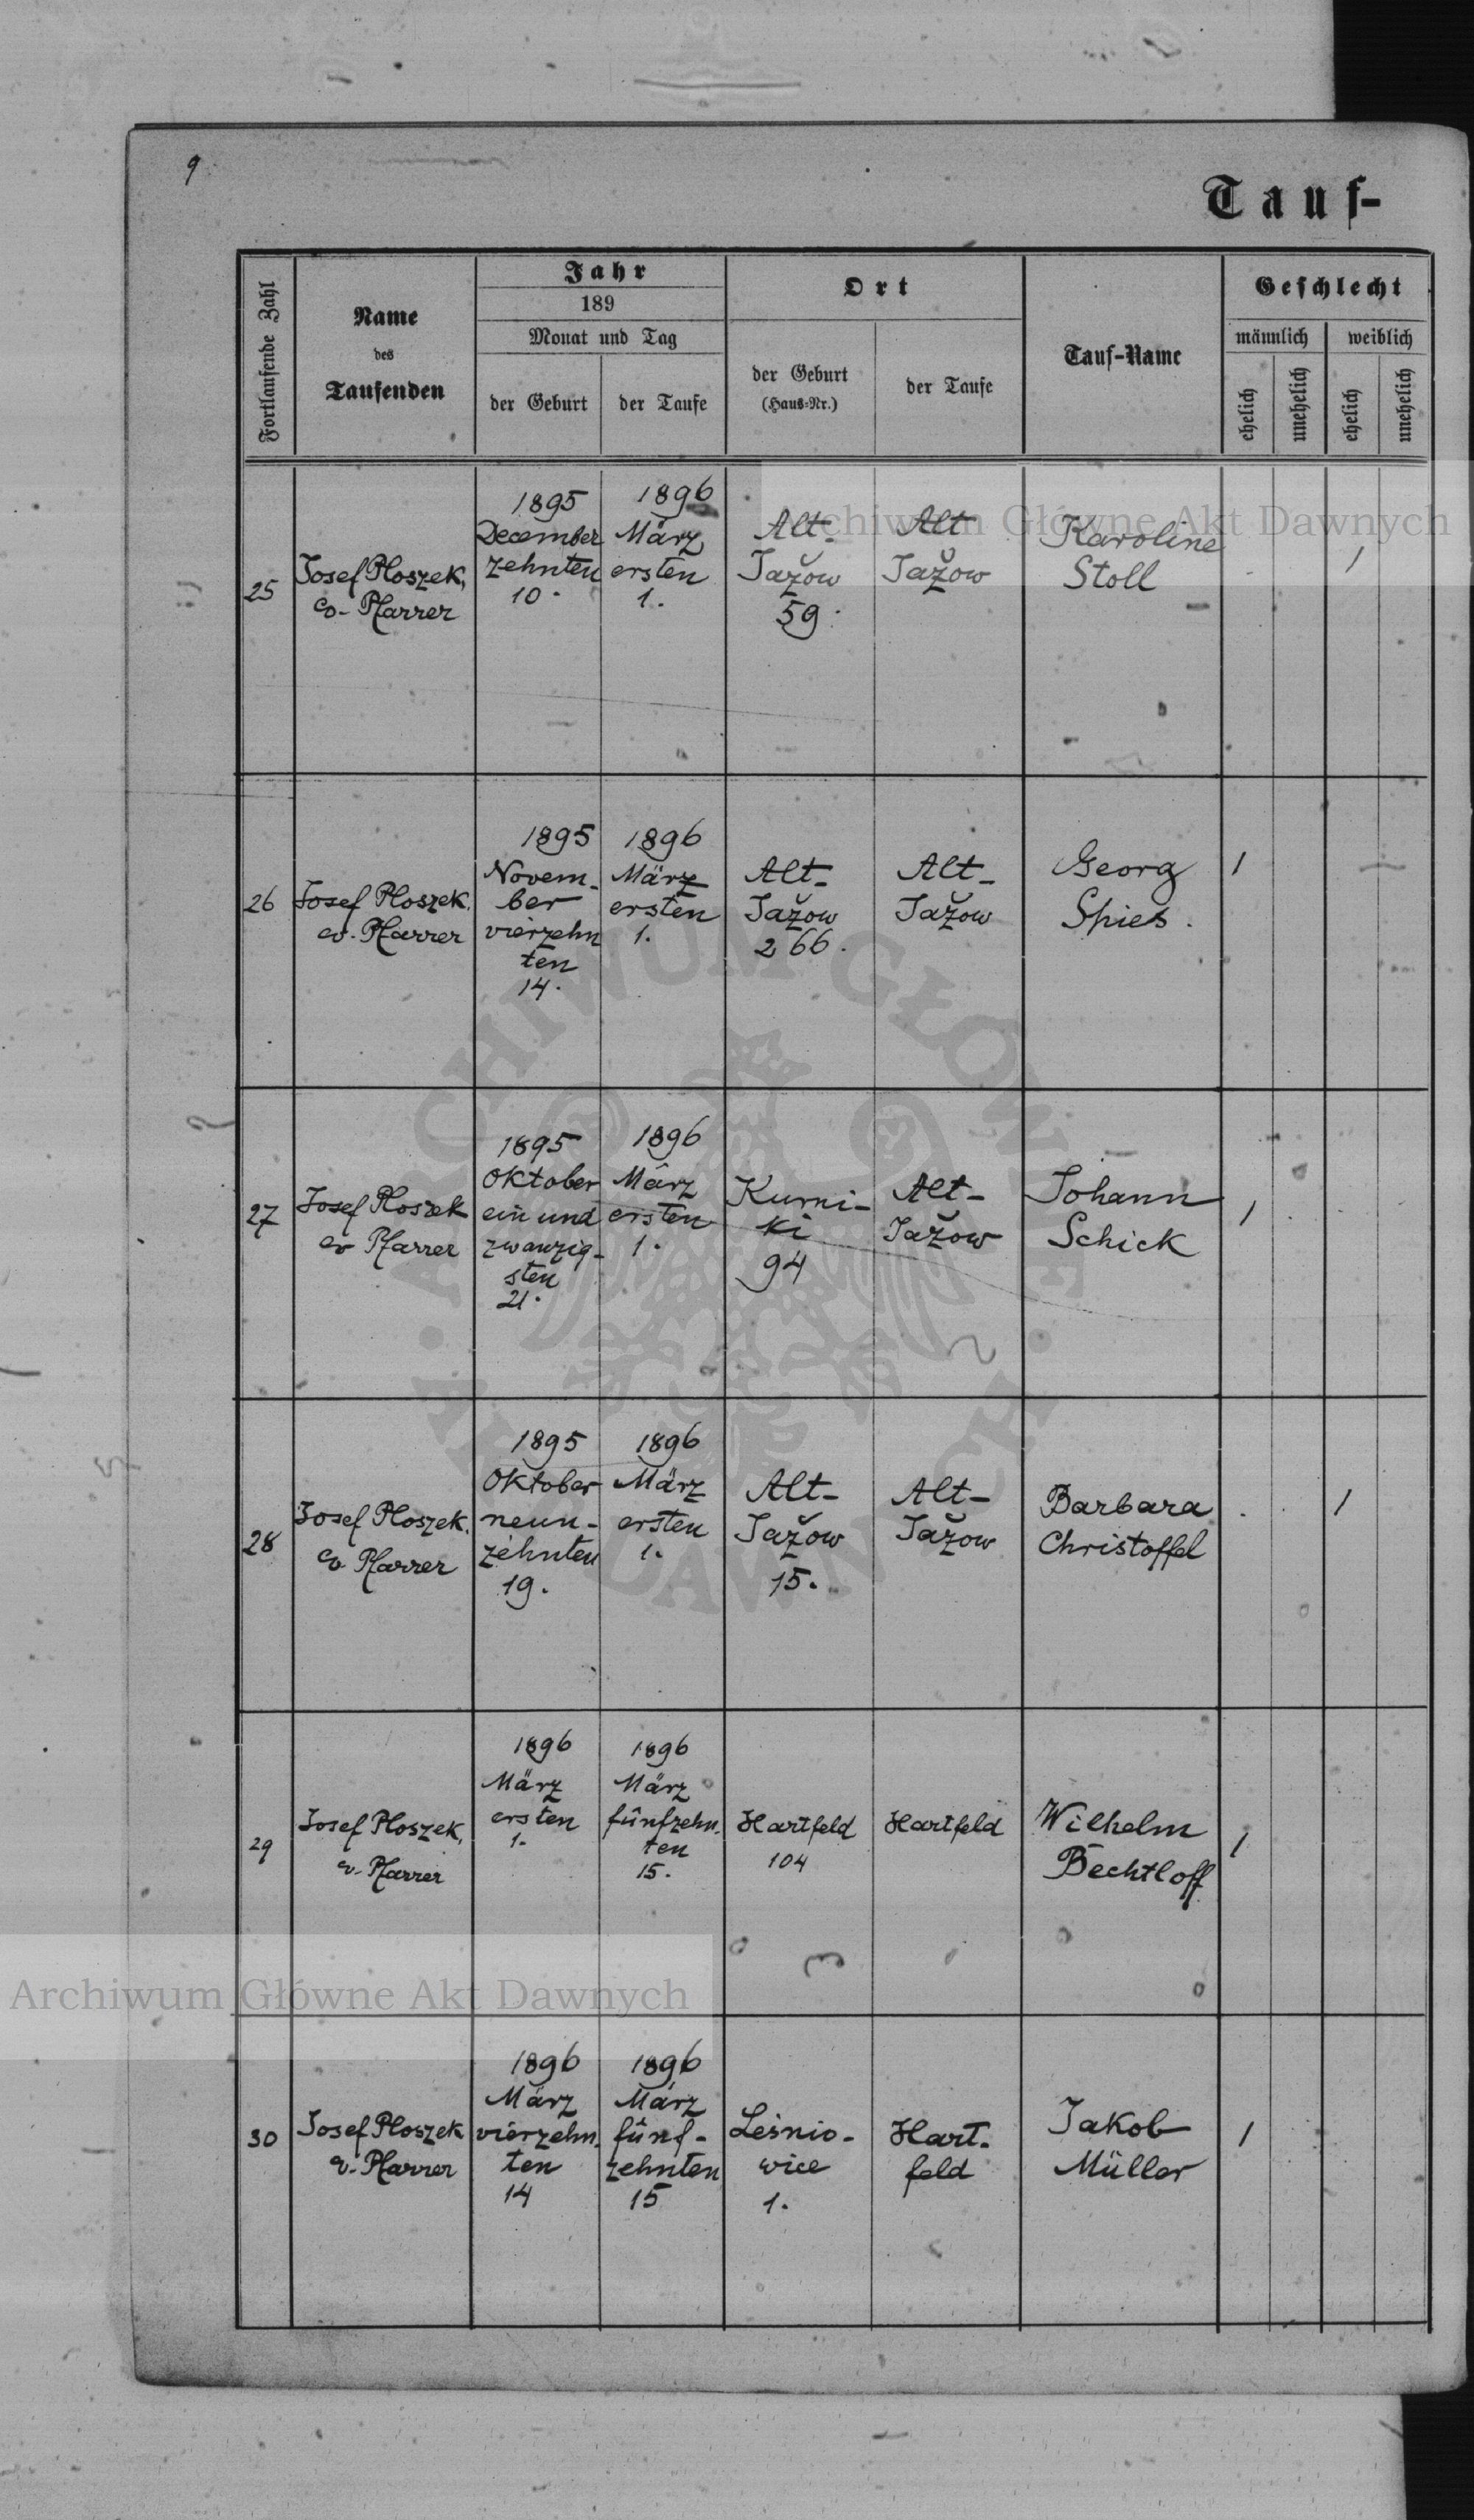 9
Tauf-
Fortlaufende Zahl
Name
des
Taufenden
Jahr
189
Monat und Tag
der Geburt
der Taufe
Ort
der Geburt
(Haus-Nr.)
der Taufe
Tauf-Name
Geschlecht
männlich
weiblich
ehelich
unehelich
ehelich
unehelich
25
Josef Ploszek,
ev. Pfarrer
1895
December
zehnten
10.
1896
März
ersten
1.
Alt-
Jažow
59.
Alt
Jažow
Karoline
Stoll
1
26
Josef Ploszek.
ev. Pfarrer
1895
Novem-
ber
vierzehn
ten
14.
1896
März
ersten
1.
Alt-
Jažow
266.
Alt-
Jažow
Georg
Spies.
1
27
Josef Ploszek
ev Pfarrer
1895
Oktober
ein und
zwanzig-
sten
21.
1896
März
ersten
1.
Kurni-
ki
94
Alt-
Jažow
Johann
Schick
1
28
Josef Ploszek.
ev Pfarrer
1895
Oktober
neun-
zehnten
19.
1896
März
ersten
1.
Alt-
Jažow
15.
Alt-
Jažow
Barbara
Christoffel
1
29
Josef Ploszek,
ev. Pfarrer
1896
März
ersten
1.
1896
März
fünfzehn-
ten
15.
Hartfeld
104
Hartfeld
Wilhelm
Bechtloff
1
30
Josef Ploszek
ev. Pfarrer
1896
März
vierzehn-
ten
14
1896
März
fünf-
zehnten
15
Leśnio-
wice
1.
Hart-
feld
Jakob
Müller
1
Archiwum Główne Akt Dawnych
Archiwum Główne Akt Dawnych
ARCHIWUM GŁÓWNE · AKT DAWNYCH ·